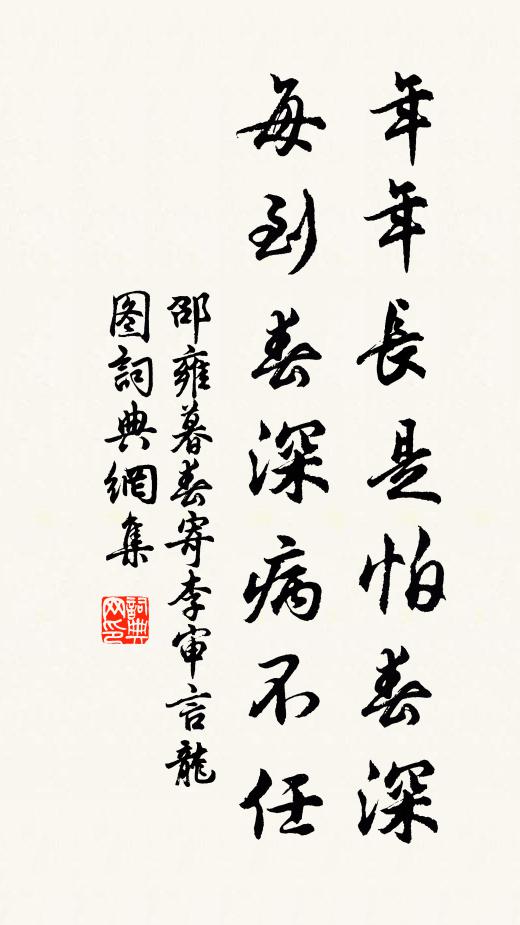 年年長是怕春深
每到春深病不任
邵雍暮春寄李审言龍
图詞典網集
詞典
网印